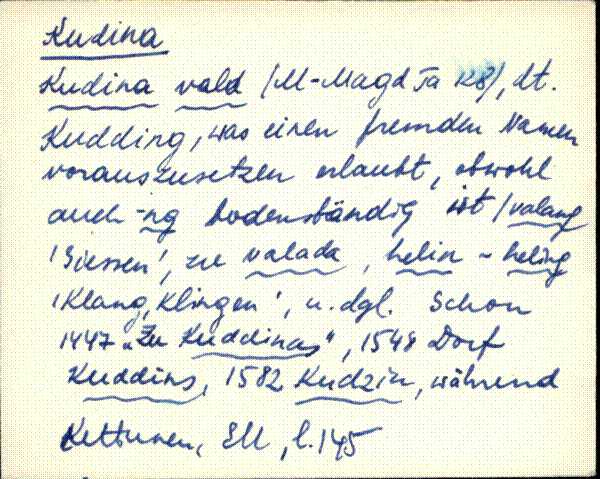 Kudina
Kudina vald (M-Magd Ta 128), dt.
Kudding, was einen fremden Namen
vorauszusetzen erlaubt, obwohl
auch -ng bodenständig ist (valang
'Giessen', zu valada, helin ~ heling
'Klang, Klingen', u. dgl. Schon
1447 „Zu Kuddinas", 1548 Dorf
Kuddins, 1582 Kudzin, während
Kettunen, EM, l. 145